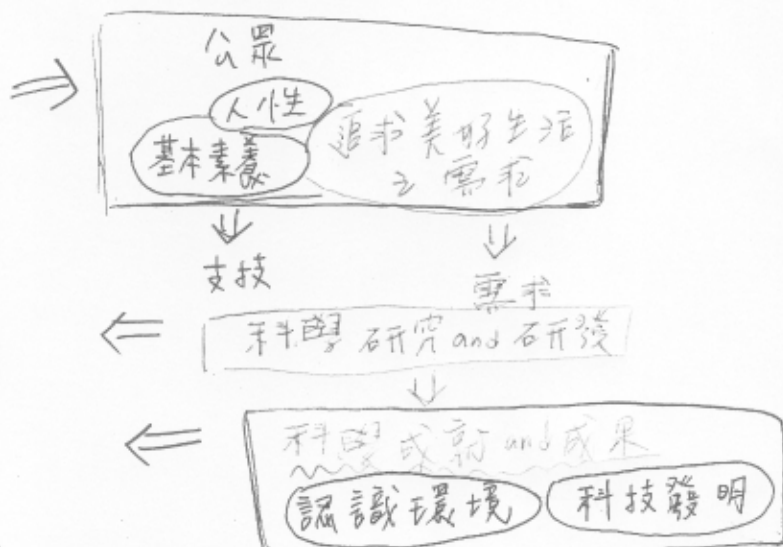 公眾
人性
基本素養
追求美好生活
之需求
支技
需求
科學研究and研發
科學成就and成果
認識環境
科技發明